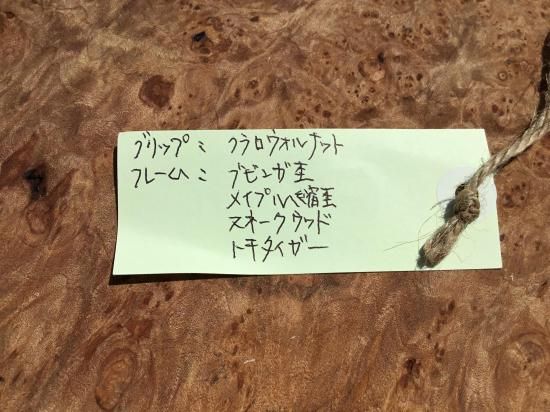 グリップ： クラロウォルナット
フレーム： ブビンガ杢
メイプルちぢみ杢
スネークウッド
トチタイガー